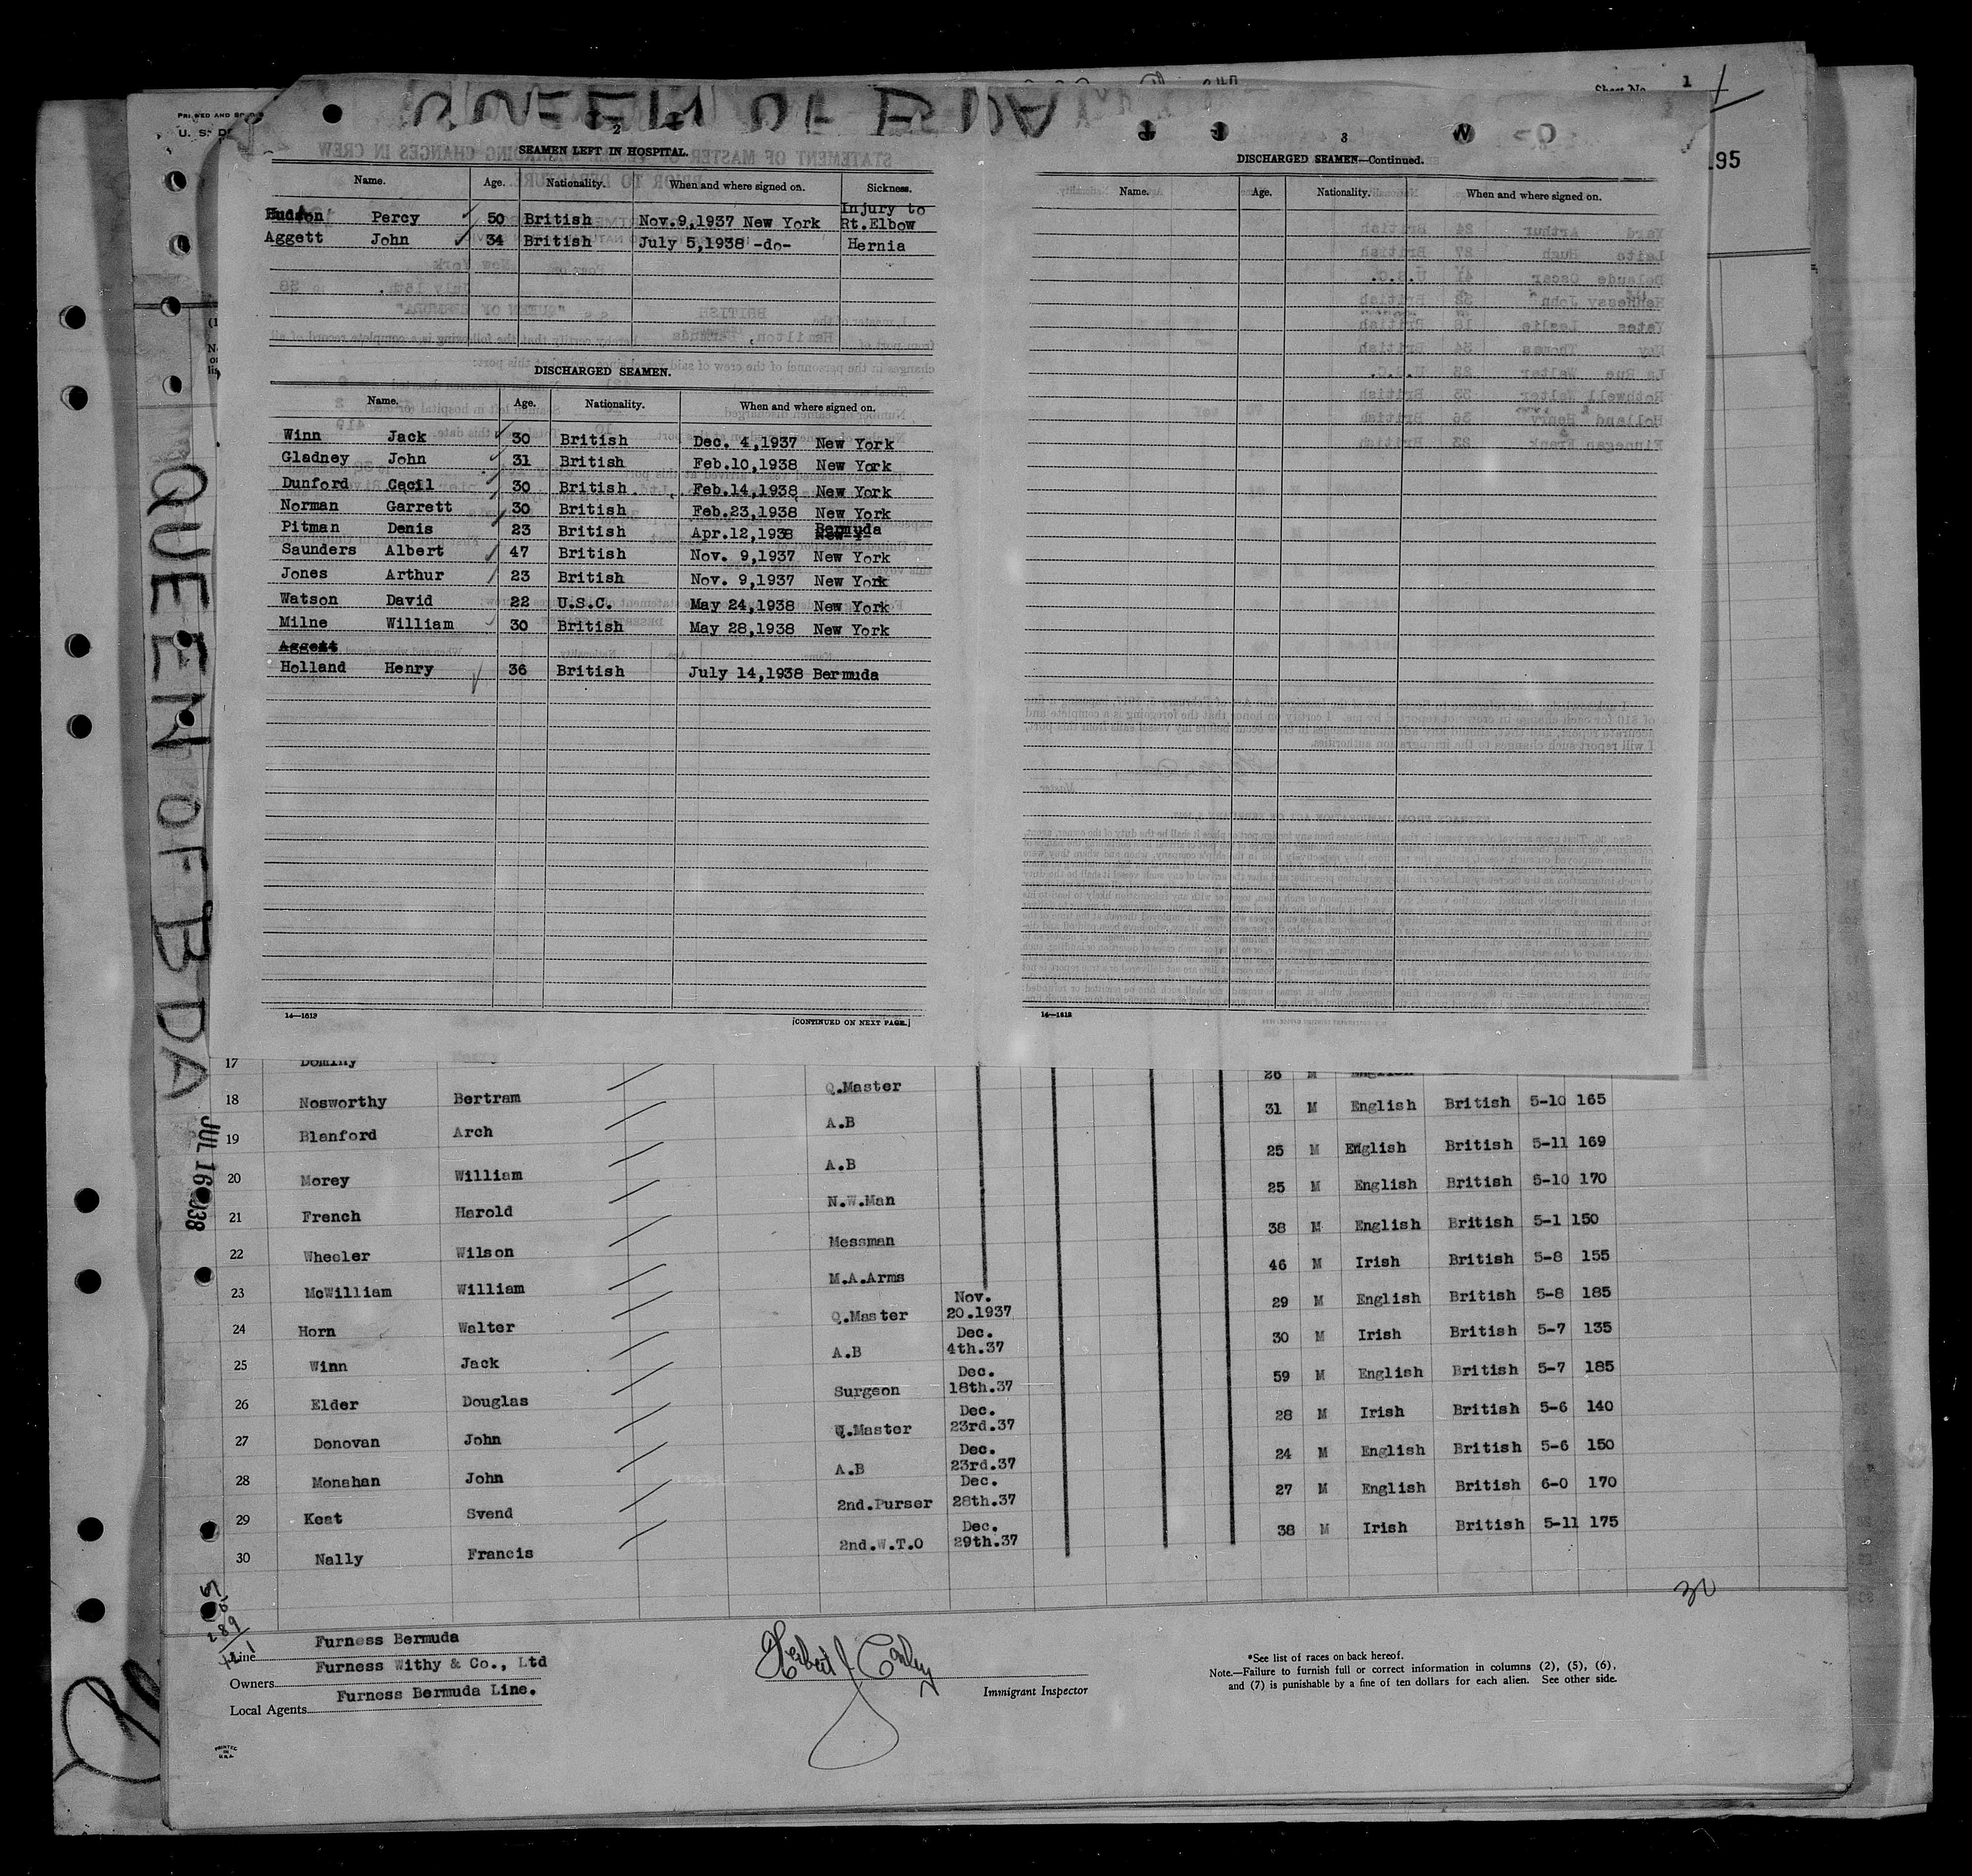 QUEEN OF BDA
Sheet No. 1
PRINTED AND SO
U. S. DE
95
2
SEAMEN LEFT IN HOSPITAL.
Name. Age. Nationality. When and where signed on. Sickness.
Hudson Percy 50 British Nov.9,1937 New York Injury to Rt.Elbow
Aggett John 34 British July 5,1938 -do- Hernia
DISCHARGED SEAMEN.
Name. Age. Nationality. When and where signed on.
Winn Jack 30 British Dec. 4,1937 New York
Gladney John 31 British Feb.10,1938 New York
Dunford Cecil 30 British Feb.14,1938 New York
Norman Garrett 30 British Feb.23,1938 New York
Pitman Denis 23 British Apr.12,1938 Bermuda
Saunders Albert 47 British Nov. 9,1937 New York
Jones Arthur 23 British Nov. 9,1937 New York
Watson David 22 U.S.C. May 24,1938 New York
Milne William 30 British May 28,1938 New York
Aggett
Holland Henry 36 British July 14,1938 Bermuda
14—1613
[CONTINUED ON NEXT PAGE.]
3
DISCHARGED SEAMEN—Continued.
Name. Age. Nationality. When and where signed on.
14—1613
QUEEN OF BDA
JUL 16 1938
17 Dominy
26 M English
18 Nosworthy Bertram Q.Master 31 M English British 5-10 165
19 Blanford Arch A.B 25 M English British 5-11 169
20 Morey William A.B 25 M English British 5-10 170
21 French Harold N.W.Man 38 M English British 5-1 150
22 Wheeler Wilson Messman 46 M Irish British 5-8 155
23 McWilliam William M.A.Arms 29 M English British 5-8 185
24 Horn Walter Q.Master Nov. 20.1937 30 M Irish British 5-7 135
25 Winn Jack A.B Dec. 4th.37 59 M English British 5-7 185
26 Elder Douglas Surgeon Dec. 18th.37 28 M Irish British 5-6 140
27 Donovan John Q.Master Dec. 23rd.37 24 M English British 5-6 150
28 Monahan John A.B Dec. 23rd.37 27 M English British 6-0 170
29 Keat Svend 2nd.Purser Dec. 28th.37 38 M Irish British 5-11 175
30 Nally Francis 2nd.W.T.O Dec. 29th.37
30
Line Furness Bermuda
Owners Furness Withy & Co., Ltd
Local Agents Furness Bermuda Line.
Herbert J. Conley
Immigrant Inspector
*See list of races on back hereof.
Note.—Failure to furnish full or correct information in columns (2), (5), (6),
and (7) is punishable by a fine of ten dollars for each alien. See other side.
PRINTED IN U.S.A.